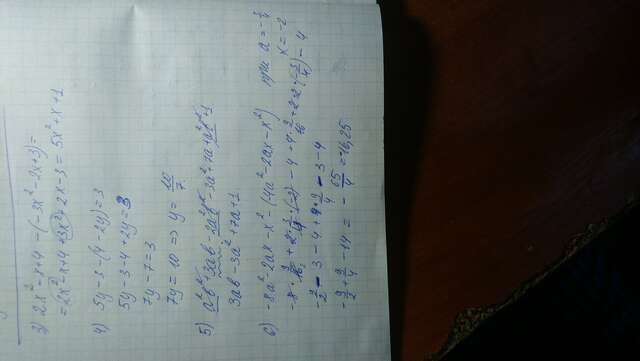 3) 2x²-x+4-(-3x²-2x+3)=
=2x²-x+4+3x²+2x-3=5x²+x+1
4) 5y-3-(4-2y)=3
5y-3-4+2y=3
7y-7=3
7y=10 => y=10/7
5) a²b²+3ab-2a²b²-3a²+7a+a²b²+1
3ab-3a²+7a+1
6) -8a²-2ax-x²-(4a²-2ax-x²) при a=-3/4
x=-2
-9/2-3-4+9/4-3-4
-9/2+9/4-14=-65/4=-16,25